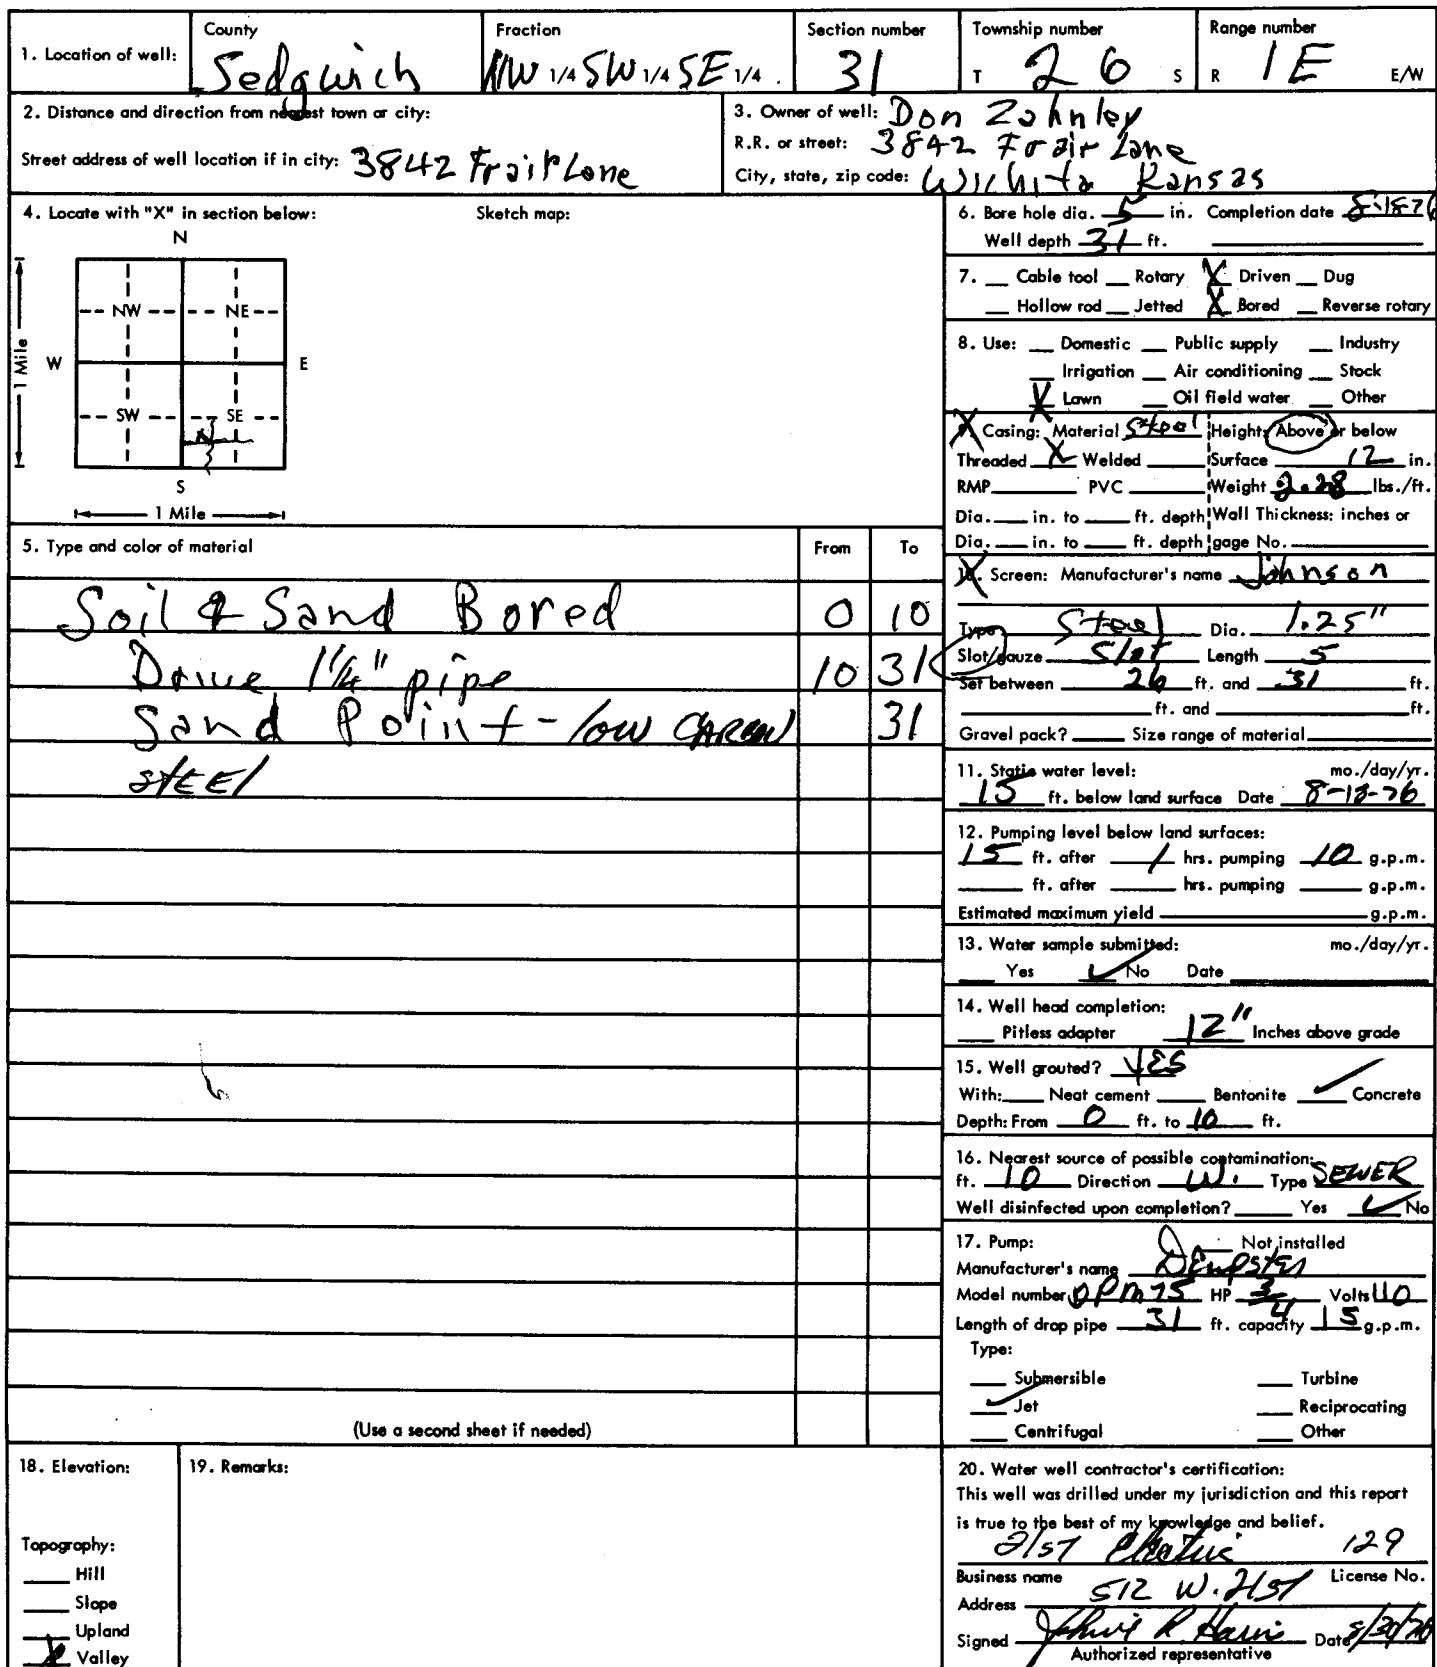 1. Location of well: County Sedgwich Fraction NW 1/4 SW 1/4 SE 1/4 Section number 31 Township number T 26 S Range number R 1E E/W
2. Distance and direction from nearest town or city:
Street address of well location if in city: 3842 Frair Lane
3. Owner of well: Don Zahnley
R.R. or street: 3842 Frair Lane
City, state, zip code: Wichita Kansas
4. Locate with "X" in section below: Sketch map:
N
NW NE
W E
1 Mile
SW SE
S
1 Mile
5. Type and color of material From To
Soil & Sand Bored 0 10
Drive 1 1/4" pipe 10 31
Sand Point - low CARBON 31
STEEl
(Use a second sheet if needed)
6. Bore hole dia. 5 in. Completion date 8-18-76
Well depth 31 ft.
7. Cable tool Rotary X Driven Dug
Hollow rod Jetted X Bored Reverse rotary
8. Use: Domestic Public supply Industry
Irrigation Air conditioning Stock
X Lawn Oil field water Other
X Casing: Material Steel Height: Above or below
Threaded X Welded Surface 12 in.
RMP PVC Weight 2.28 lbs./ft.
Dia. in. to ft. depth Wall Thickness: inches or
Dia. in. to ft. depth gage No.
10. Screen: Manufacturer's name Johnson
Type Steel Dia. 1.25"
Slot/gauze Slot Length 5
Set between 26 ft. and 31 ft.
ft. and ft.
Gravel pack? Size range of material
11. Static water level: mo./day/yr.
15 ft. below land surface Date 8-18-76
12. Pumping level below land surfaces:
15 ft. after 1 hrs. pumping 10 g.p.m.
ft. after hrs. pumping g.p.m.
Estimated maximum yield g.p.m.
13. Water sample submitted: mo./day/yr.
Yes ✓ No Date
14. Well head completion:
Pitless adapter 12" Inches above grade
15. Well grouted? YES
With: Neat cement Bentonite ✓ Concrete
Depth: From 0 ft. to 10 ft.
16. Nearest source of possible contamination:
ft. 10 Direction W. Type SEWER
Well disinfected upon completion? Yes ✓ No
17. Pump: Not installed
Manufacturer's name Dempster
Model number DPM75 HP 3/4 Volts 110
Length of drop pipe 31 ft. capacity 15 g.p.m.
Type:
Submersible Turbine
✓ Jet Reciprocating
Centrifugal Other
18. Elevation:
Topography:
Hill
Slope
Upland
X Valley
19. Remarks:
20. Water well contractor's certification:
This well was drilled under my jurisdiction and this report
is true to the best of my knowledge and belief.
21st Electric 129
Business name License No.
Address 512 W. 21st
Signed R. Harris Date 8/30/76
Authorized representative